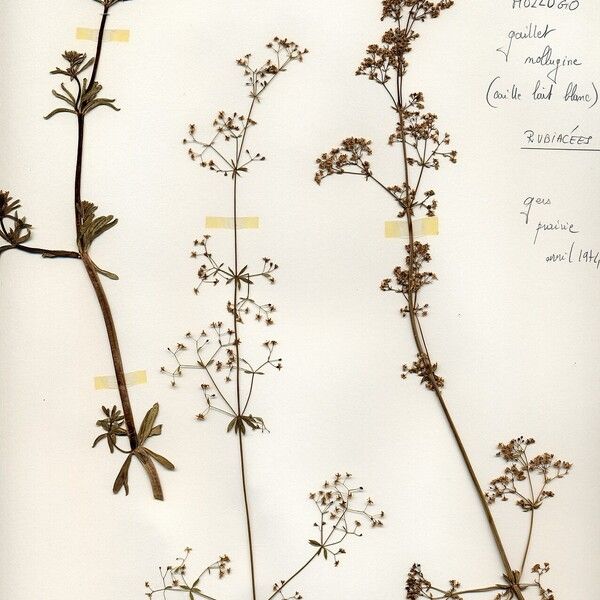 MOLLUGO
gaillet
mollugine
(caille lait blanc)
RUBIACÉES
gers
prairie
avril 1974